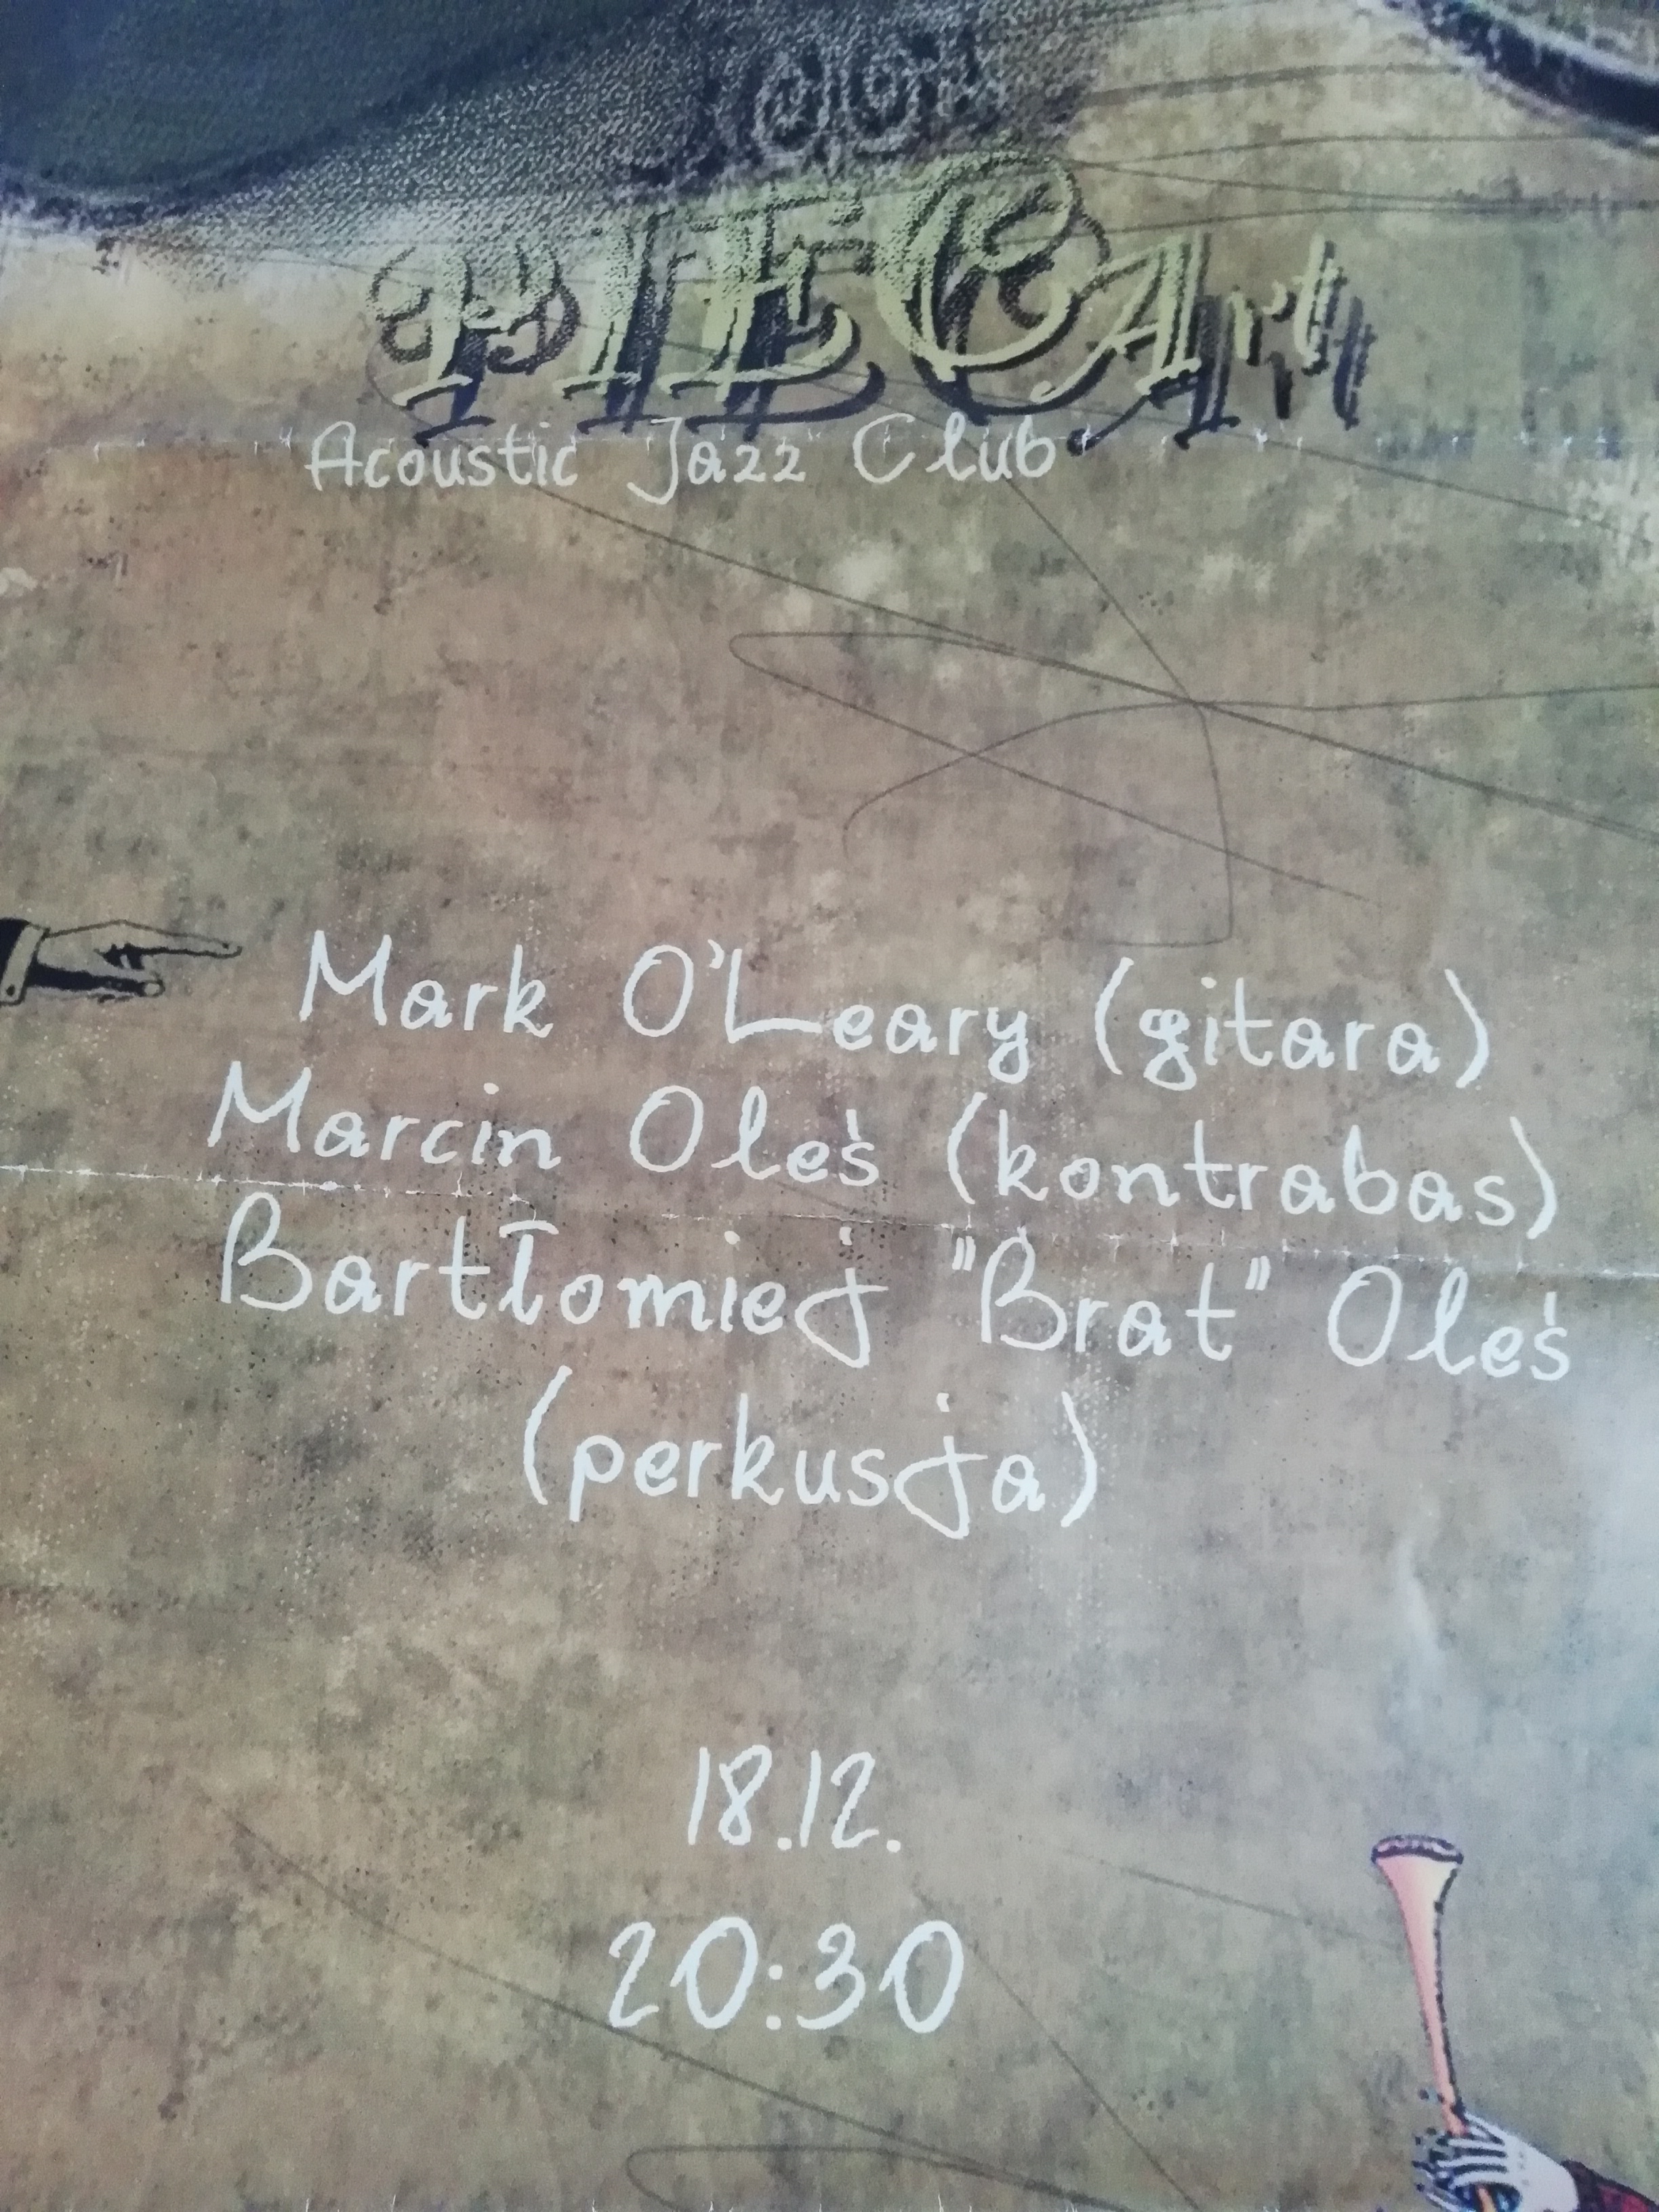 PIECArt
Acoustic Jazz Club
Mark O'Leary (gitara)
Marcin Oleś (kontrabas)
Bartłomiej "Brat" Oleś
(perkusja)
18.12.
20:30